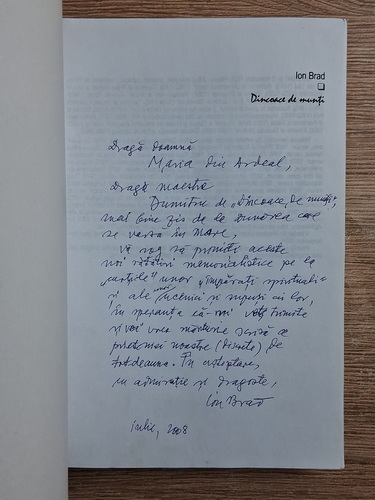 Ion Brad
Dincoace de munți
Dragă Doamnă
Maria din Ardeal,
Dragă maestre
Dumitru de „Dincoace de munți”,
mai bine zis de la Dunărea care
se varsă în Mare,
Vă rog să primiți aceste
noi rătăciri memorialistice pe la
„curțile” unor „împărați spirituali”
și ale unor ucenici și supuși ai lor,
în speranța că-mi veți trimite
și voi vrea mărturie scrisă a
prieteniei noastre de
totdeauna. În așteptare,
cu admirație și dragoste,
Ion Brad
iulie, 2008